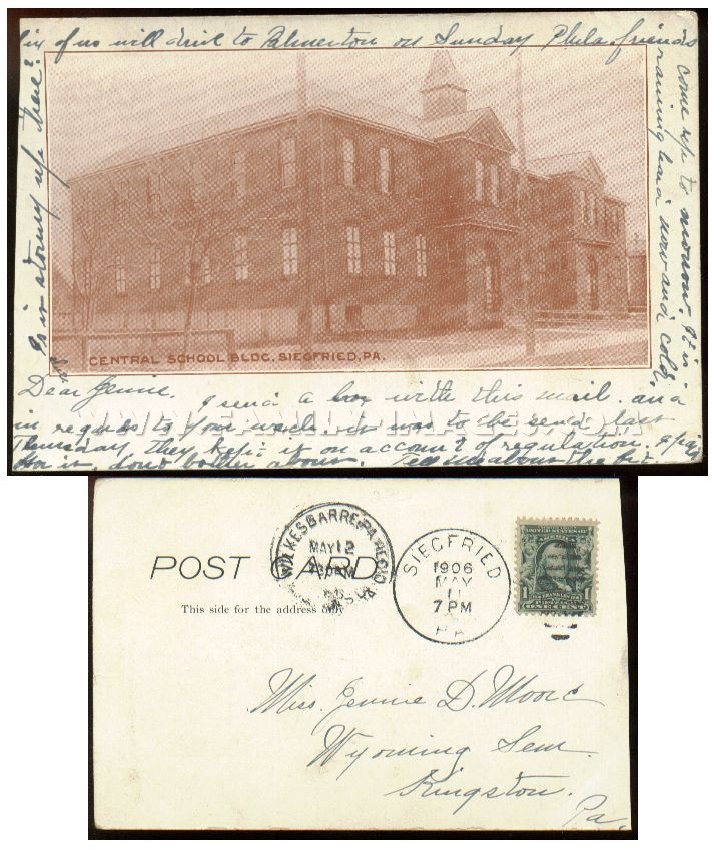 Six of us will drive to Palmerton on Sunday Phila. friends
come up to morrow. It is
raining hard now and cold.
Is it stormy up there?
CENTRAL SCHOOL BLDG. SIEGFRIED, PA.
Dear Jennie. I send a box with this mail. and
in regards to your it was to be send last
Thursday they kept it on account of regulation. I paid
for it, dont bother about. Tell me about the
POST CARD
This side for the address only
WILKES BARRE, PA.
MAY 12
SIEGFRIED
1906
MAY
11
7 PM
PA.
1
ONE CENT
Miss. Jennie D. Moore
Wyoming Sem.
Kingston.
Pa.